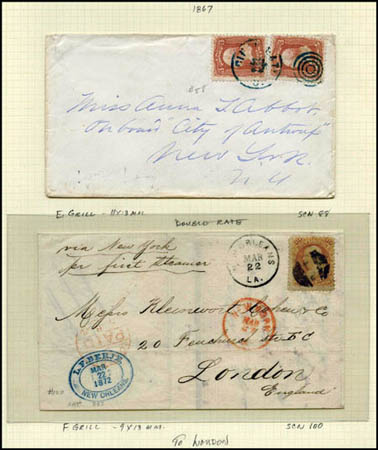 1867
Miss Anna L. Abbot
Onboard "City of Antwerp"
New York
N Y
E. GRILL - 11X13 MM.
SCN 88
DOUBLE RATE
via New York
per first steamer
ORLEANS
MAR
22
LA.
Messrs Kleinwort Cohen & Co
20 Fenchurch St E C
London
England
PAID
L.F. BERJE
MAR
22
1872
NEW ORLEANS
F GRILL - 9X13 MM.
SCN 100
TO LONDON